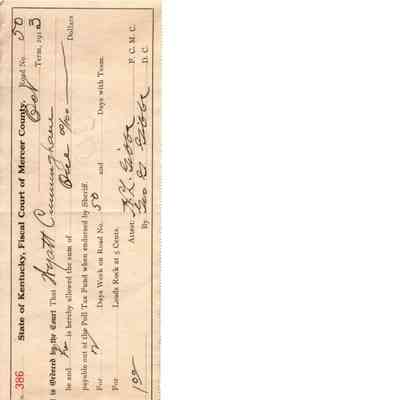 o. 386 State of Kentucky, Fiscal Court of Mercer County, Road No. 50
t is Ordered by the Court That Wyatt Cunninghane Oct Term, 1913
he and he is hereby allowed the sum of One 00/100 Dollars
payable out of the Poll Tax Fund when endorsed by Sheriff.
For 2 Days Work on Road No. 50 and Days with Team.
For Loads Rock at 5 Cents.
1 00 Attest: Gibbs F. C. M. C.
By Geo Gibbs D. C.